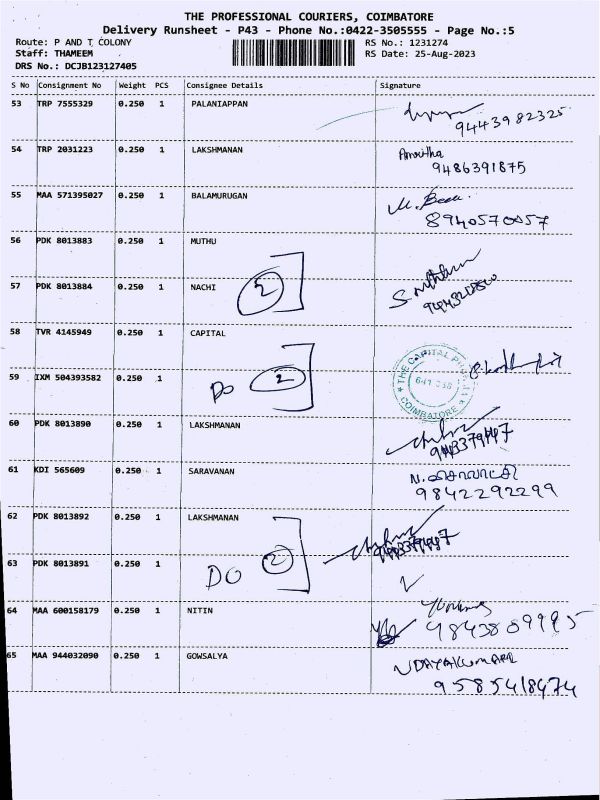 THE PROFESSIONAL COURIERS, COIMBATORE
Delivery Runsheet - P43 - Phone No.:0422-3505555 - Page No.:5
Route: P AND T COLONY RS No.: 1231274
Staff: THAMEEM RS Date: 25-Aug-2023
DRS No.: DCJB123127405
S No Consignment No Weight PCS Consignee Details Signature
53 TRP 7555329 0.250 1 PALANIAPPAN
9443982325
54 TRP 2031223 0.250 1 LAKSHMANAN Amritha
9486391875
55 MAA 571395027 0.250 1 BALAMURUGAN
8940570057
56 PDK 8013883 0.250 1 MUTHU
57 PDK 8013884 0.250 1 NACHI 2
58 TVR 4145949 0.250 1 CAPITAL
THE CAPITAL
COIMBATORE
59 IXM 504393582 .250 1 DO 2
60 PDK 8013890 0.250 1 LAKSHMANAN
61 KDI 565609 0.250 1 SARAVANAN
9842292299
62 PDK 8013892 0.250 1 LAKSHMANAN
63 PDK 8013891 0.250 1 DO 2
64 MAA 600158179 0.250 1 NITIN
9843809995
65 MAA 944032090 0.250 1 GOWSALYA UDAYAKUMAR
9585418474